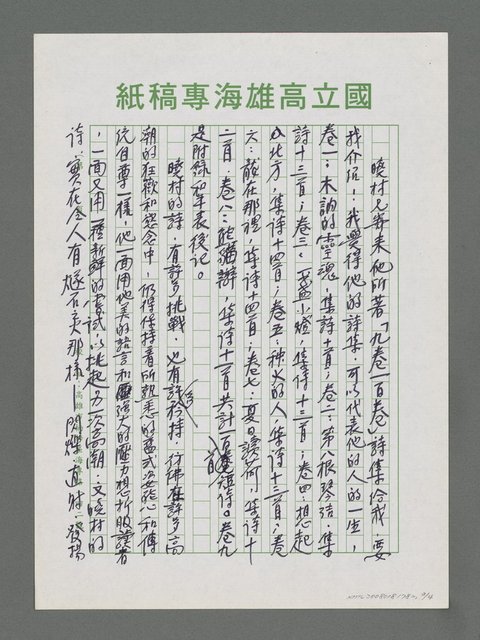 國立高雄海專稿紙
曉村兄寄来他所著「九卷一百卷」詩集給我，要
我介绍，我覺得他的詩集，可以代表他的人的一生，
卷一：木訥的靈魂，集詩十首，卷二：第八根琴弦，集
詩十三首，卷三：一盞小燈，集詩十三首，卷四：想起
北方，集詩十四首，卷五：神火的人，集詩十三首，卷
六：献在那裡，集詩十四首，卷七：夏日讀荷，集詩十
二首，卷八：貓辯，集詩十一首共計一百首短诗。卷九
是附錄和年表後記。
曉村的詩，有許多挑戰，也有許多矜持，彷彿在許多高
潮的狂歡和悲念中，仍得保持着所熟悉的舊式姿態，和傳
統自尊一樣，他一面用他美的語言和強大的壓力想折服讀者
，一面又用一種新鮮的嘗試，以挑起另一次高潮，文曉村的
詩，實在令人有燧石夾那樣——閃爍、直射、發揚